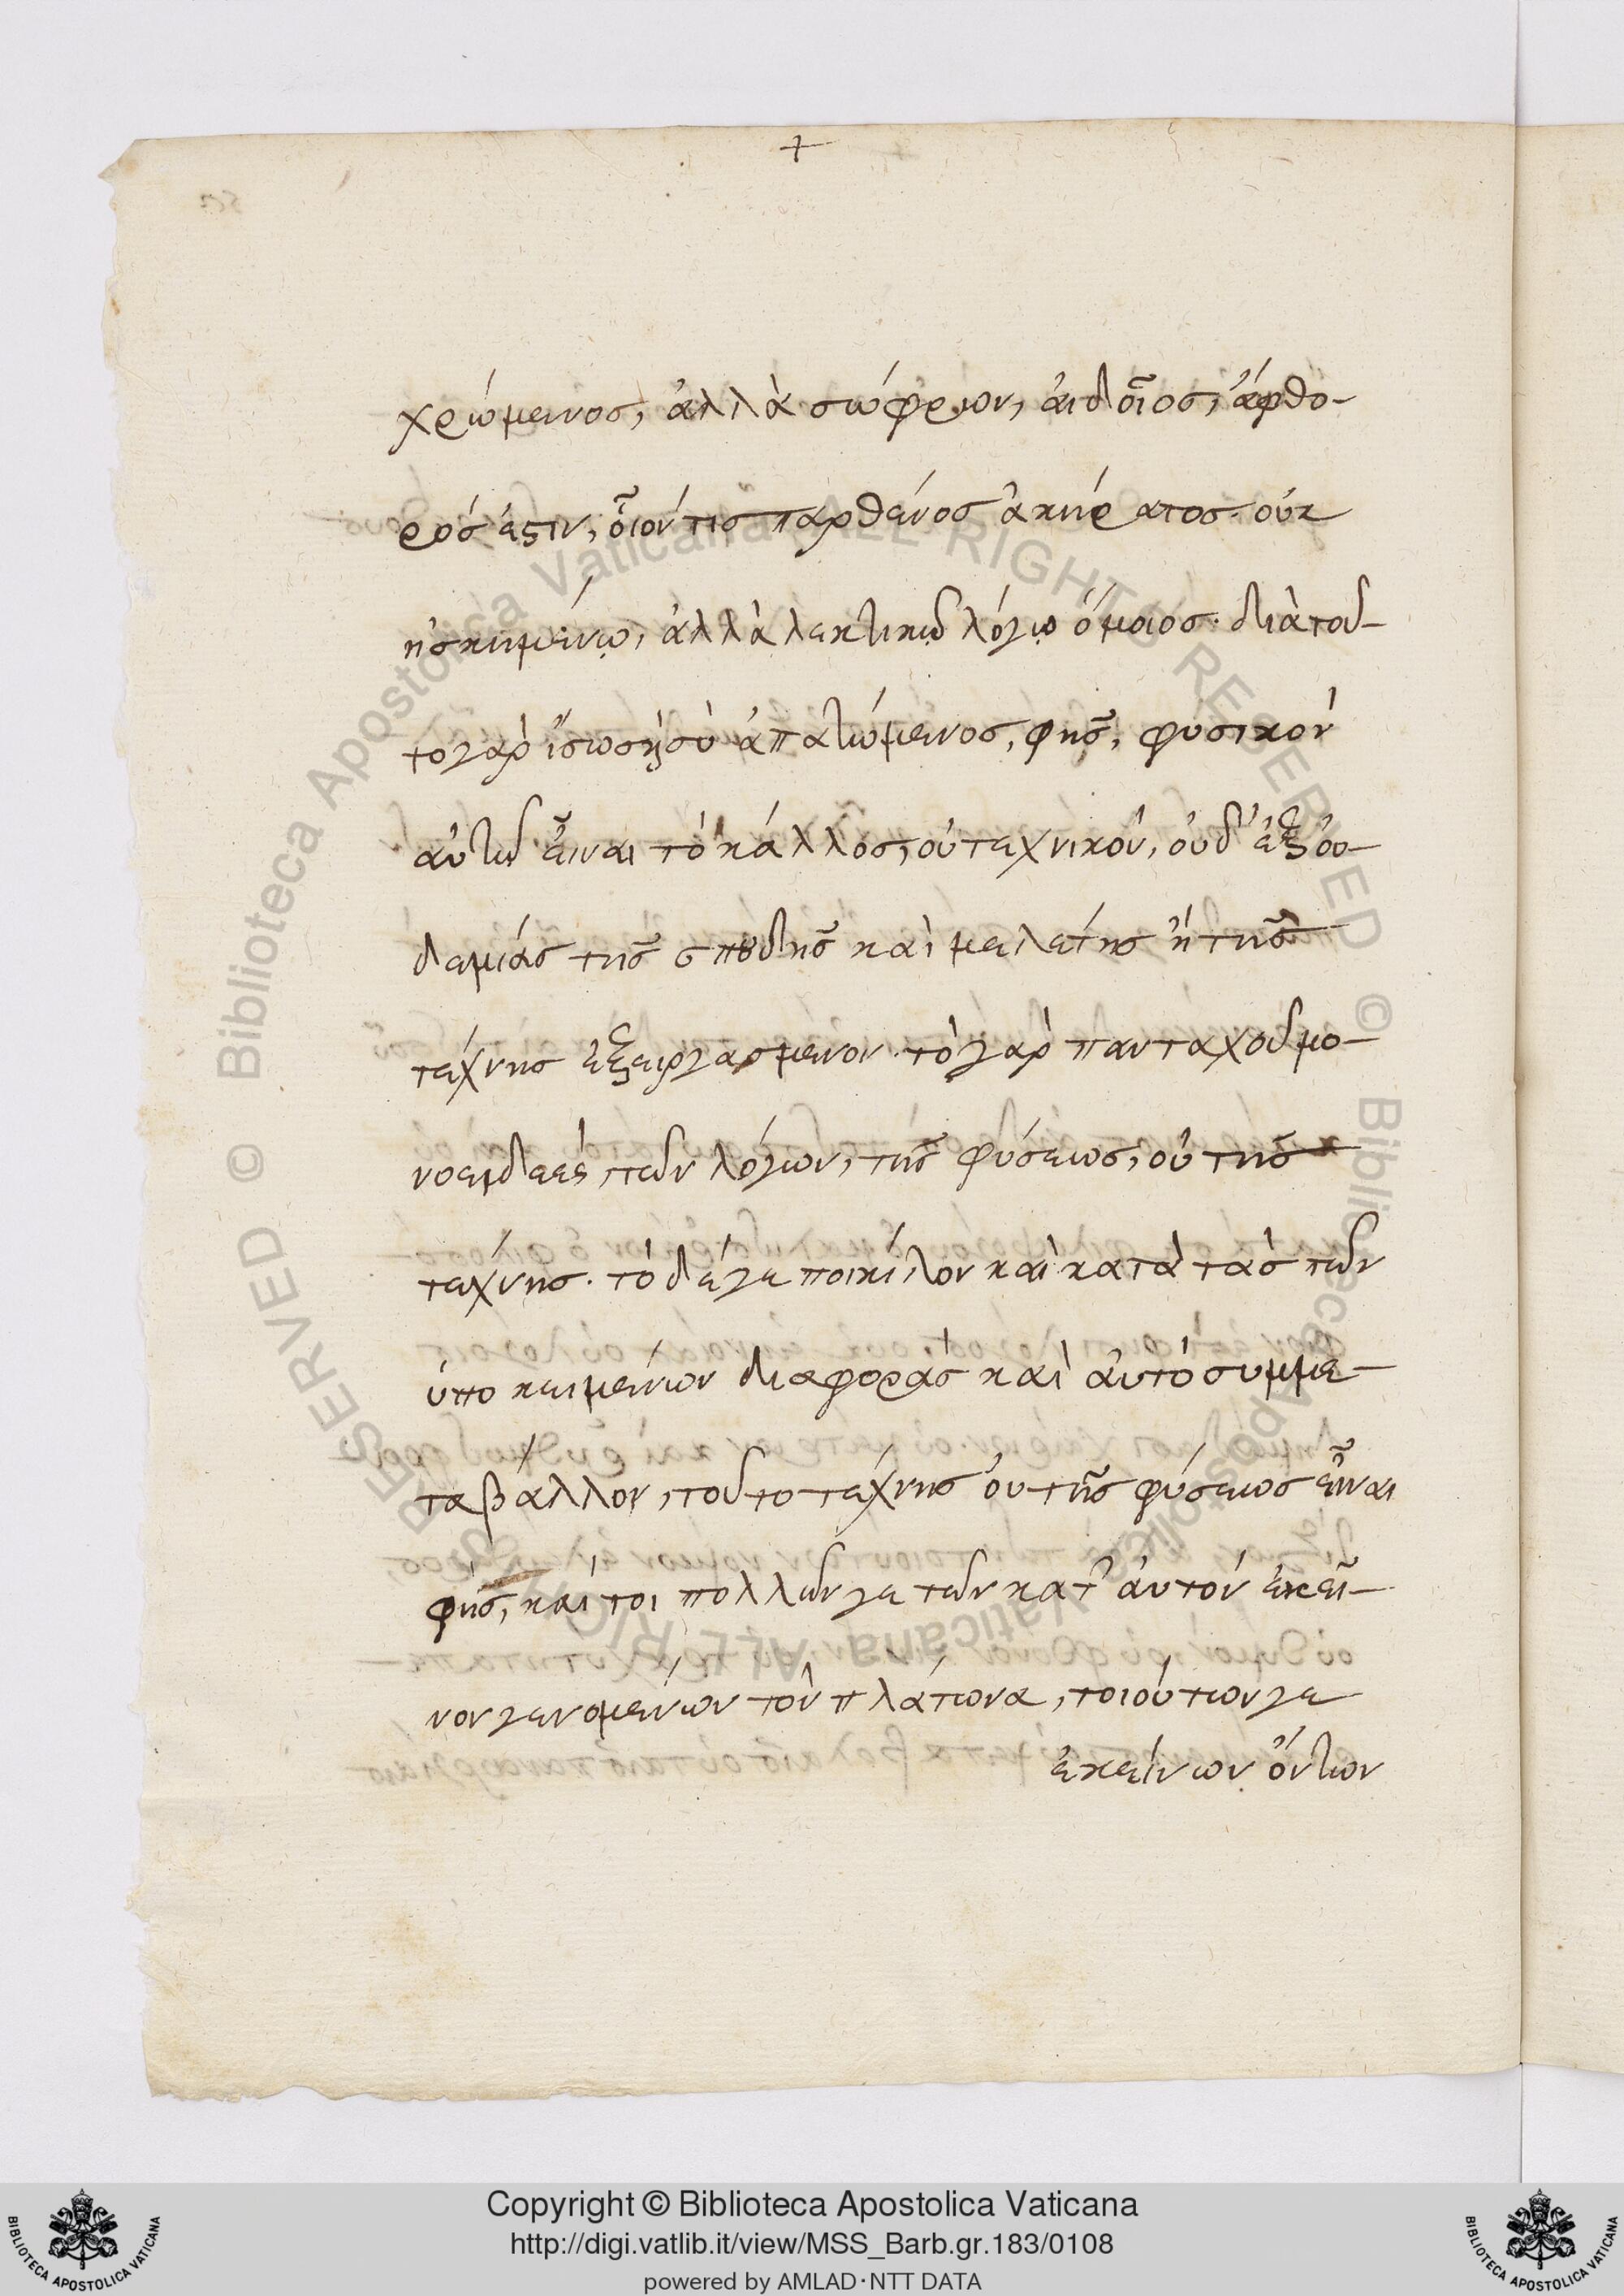 +
χρώμενος, ἀλλὰ σώφρων, αἰδοῖος, ἄφθο-
ρός ἐστιν, οἷον τις παρθένος ἀκήρατος. οὐκ
ἠσκημένῳ, ἀλλὰ λεκτικῷ λόγῳ ὅμοιος. διὰ τοῦ-
το γὰρ ἴσως ἢ σὺ ἀπατώμενος, φῂς, φυσικὸν
αὐτῷ εἶναι τὸ κάλλος, οὐ τεχνικὸν, οὐδ' ἐξ οὐ-
δεμιάς τῆς σπουδῆς καὶ μελέτης ἢ τῆς
τέχνης ἐξειργασμένον. τὸ γὰρ πανταχοῦ μο-
νοειδεὲς, τῶν λόγων, τῆς φύσεως, οὐ τῆς
τέχνης. τὸ δέ γε ποικίλον καὶ κατὰ τὰς τῶν
ὑποκειμένων διαφορὰς καὶ αὐτὸ συμμε-
ταβάλλον, τοῦτο τέχνης οὐ τῆς φύσεως εἶναι
φῂς, καί τοι πολλῶν γε τῶν κατ' αὐτὸν ἐκεῖ-
νον γενομένων τὸν πλάτωνα, τοιούτων γε
ἐκείνων ὄντων
Copyright © Biblioteca Apostolica Vaticana
http://digi.vatlib.it/view/MSS_Barb.gr.183/0108
powered by AMLAD·NTT DATA
BIBLIOTECA APOSTOLICA VATICANA
BIBLIOTECA APOSTOLICA VATICANA
© Biblioteca Apostolica Vaticana ALL RIGHTS RESERVED © Biblioteca Apostolica Vaticana ALL RIGHTS RESERVED